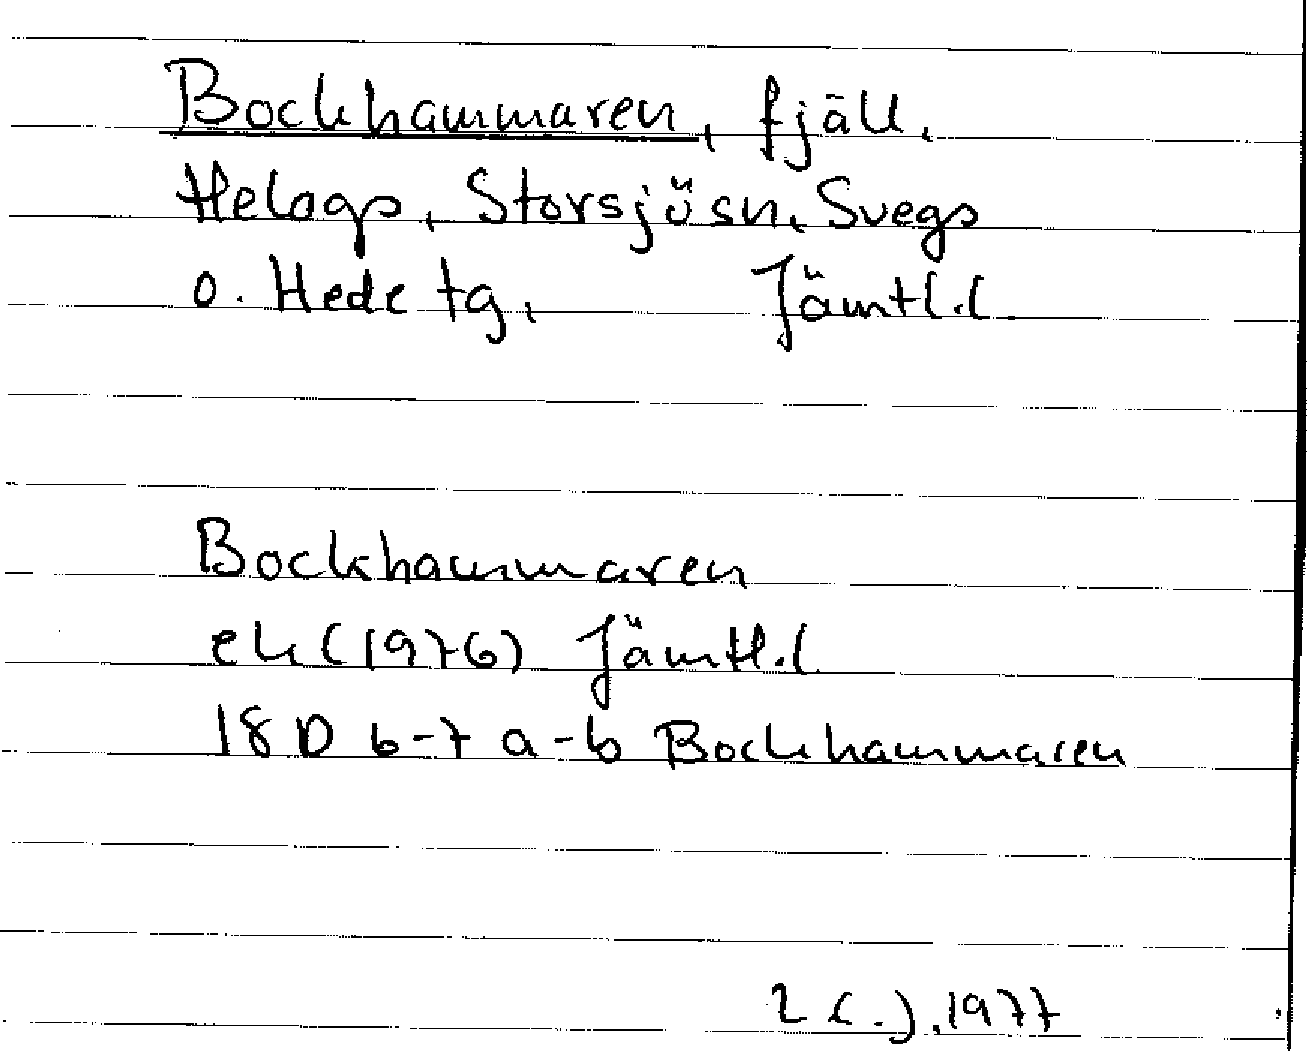 Bockhammaren, fjäll,
Helags, Storsjösn, Svegs
o. Hede tg, Jämtl.l
Bockhammaren
ek (1976) Jämtl.l
18 D 6-7 a-b Bockhammaren
1977